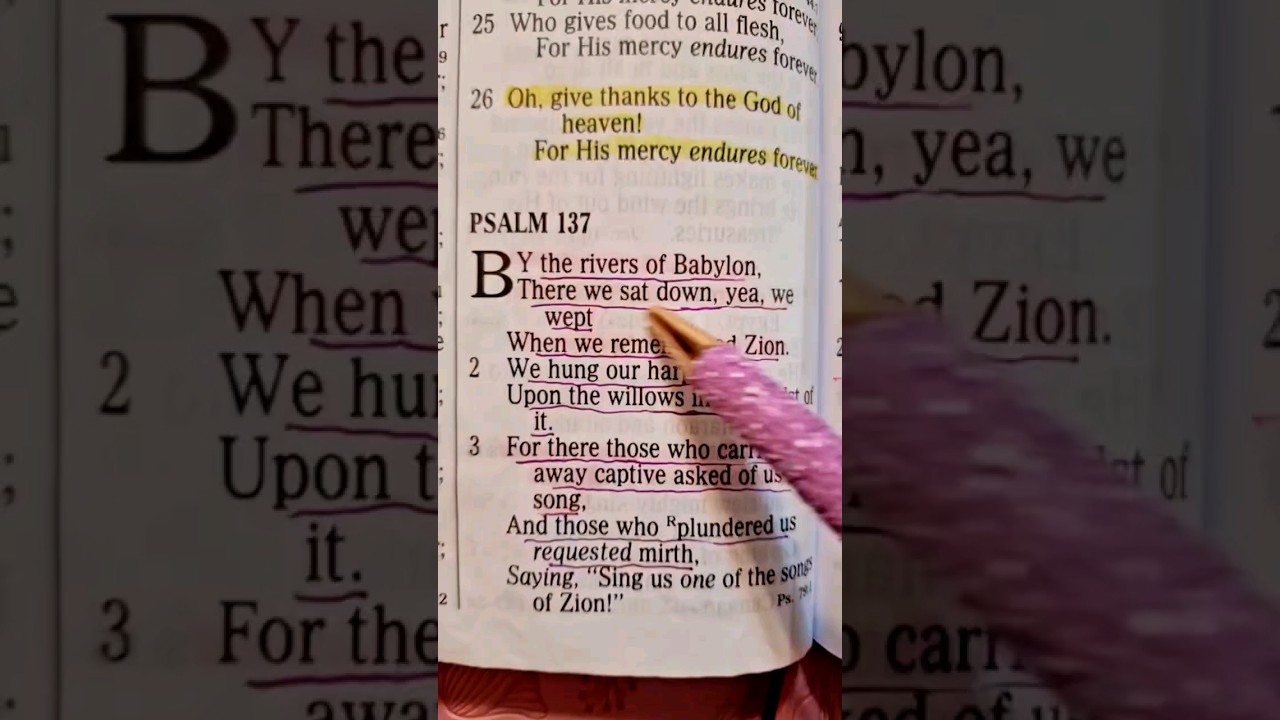 endures forever
25 Who gives food to all flesh,
For His mercy endures forever
26 Oh, give thanks to the God of
heaven!
For His mercy endures forever
PSALM 137
BY the rivers of Babylon,
There we sat down, yea, we
wept
When we Zion.
2 We hung our
Upon the willows of
it.
3 For there those who
away captive asked of us
song,
And those who ᴿplundered us
requested mirth,
Saying, “Sing us one of the songs
of Zion!”
Ps.